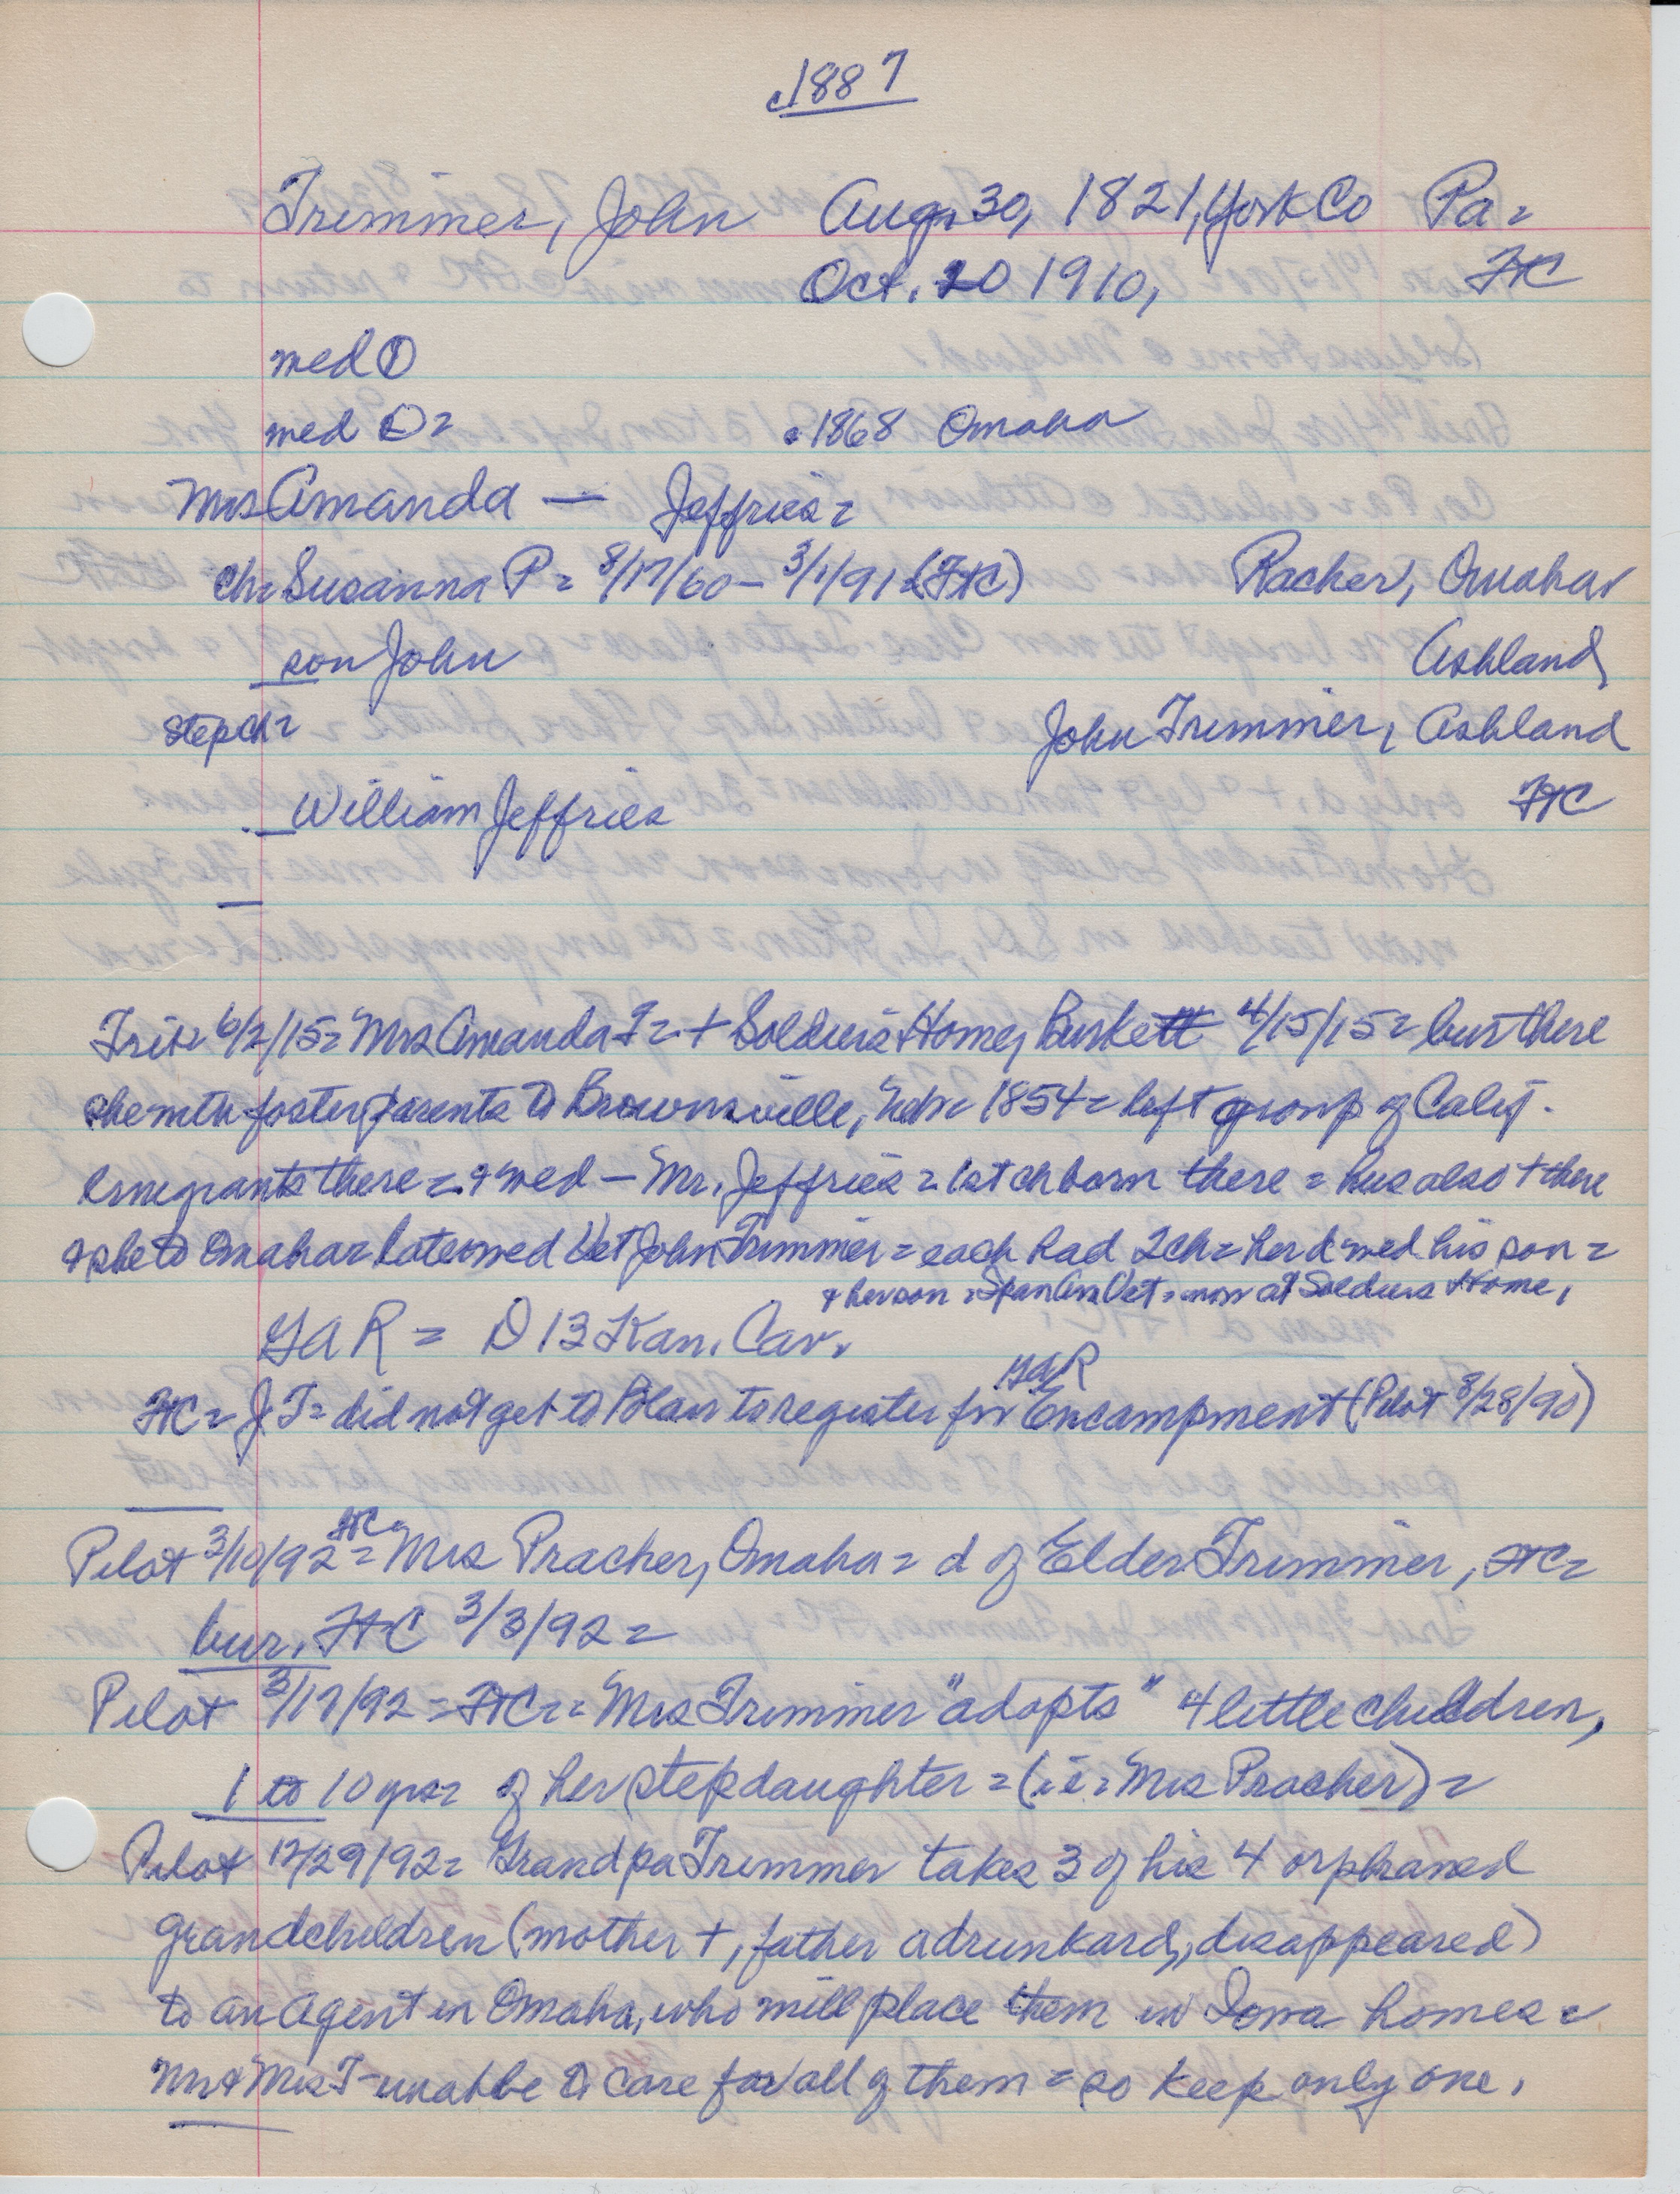 c1887
Trimmer, John Aug. 30, 1821, York Co Pa =
Oct. 20 1910, FtC
med ①
med ② = c1868 Omaha
Mrs Amanda — Jeffries =
ch = Susanna P = 8/17/60 – 3/1/912 (FtC) Pracher, Omaha
son John Ashland
Stepch = John Trimmer, Ashland
William Jeffries FtC
Trib 6/2/15 = Mrs Amanda T = + Soldiers Home, Burkett 4/15/15 = bur there
she with foster parents to Brownsville, Nebr 1854 = left group of Calif.
Emegrants there = & med – Mr. Jeffries = 1st ch born there = hus also + there
& she to Omaha = later med Vet John Trimmer = each had 2 ch = her d med his son =
& her son = Span Am Vet = now at Soldiers Home,
GAR = D 13 Kan. Cav.
FtC = J T = did not get to Blair to register for GAR Encampment (Pilot 8/28/90)
Pilot 3/10/92 FtC = Mrs Pracher, Omaha = d of Elder Trimmer, FtC =
bur. FtC 3/3/92 =
Pilot 3/17/92 = FtC = Mrs Trimmer "adopts" 4 little children,
1 to 10 yrs = of her stepdaughter = (i.e. = Mrs Pracher) =
Pilot 12/29/92 = Grandpa Trimmer takes 3 of his 4 orphaned
grandchildren (mother +, father a drunkard, disappeared)
to an agent in Omaha, who will place them in Iowa homes =
Mr & Mrs T – unable to care for all of them = so keep only one.